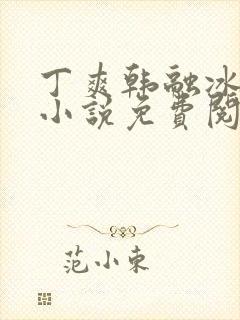 丁爽韩融冰
小说免費閱
范小東